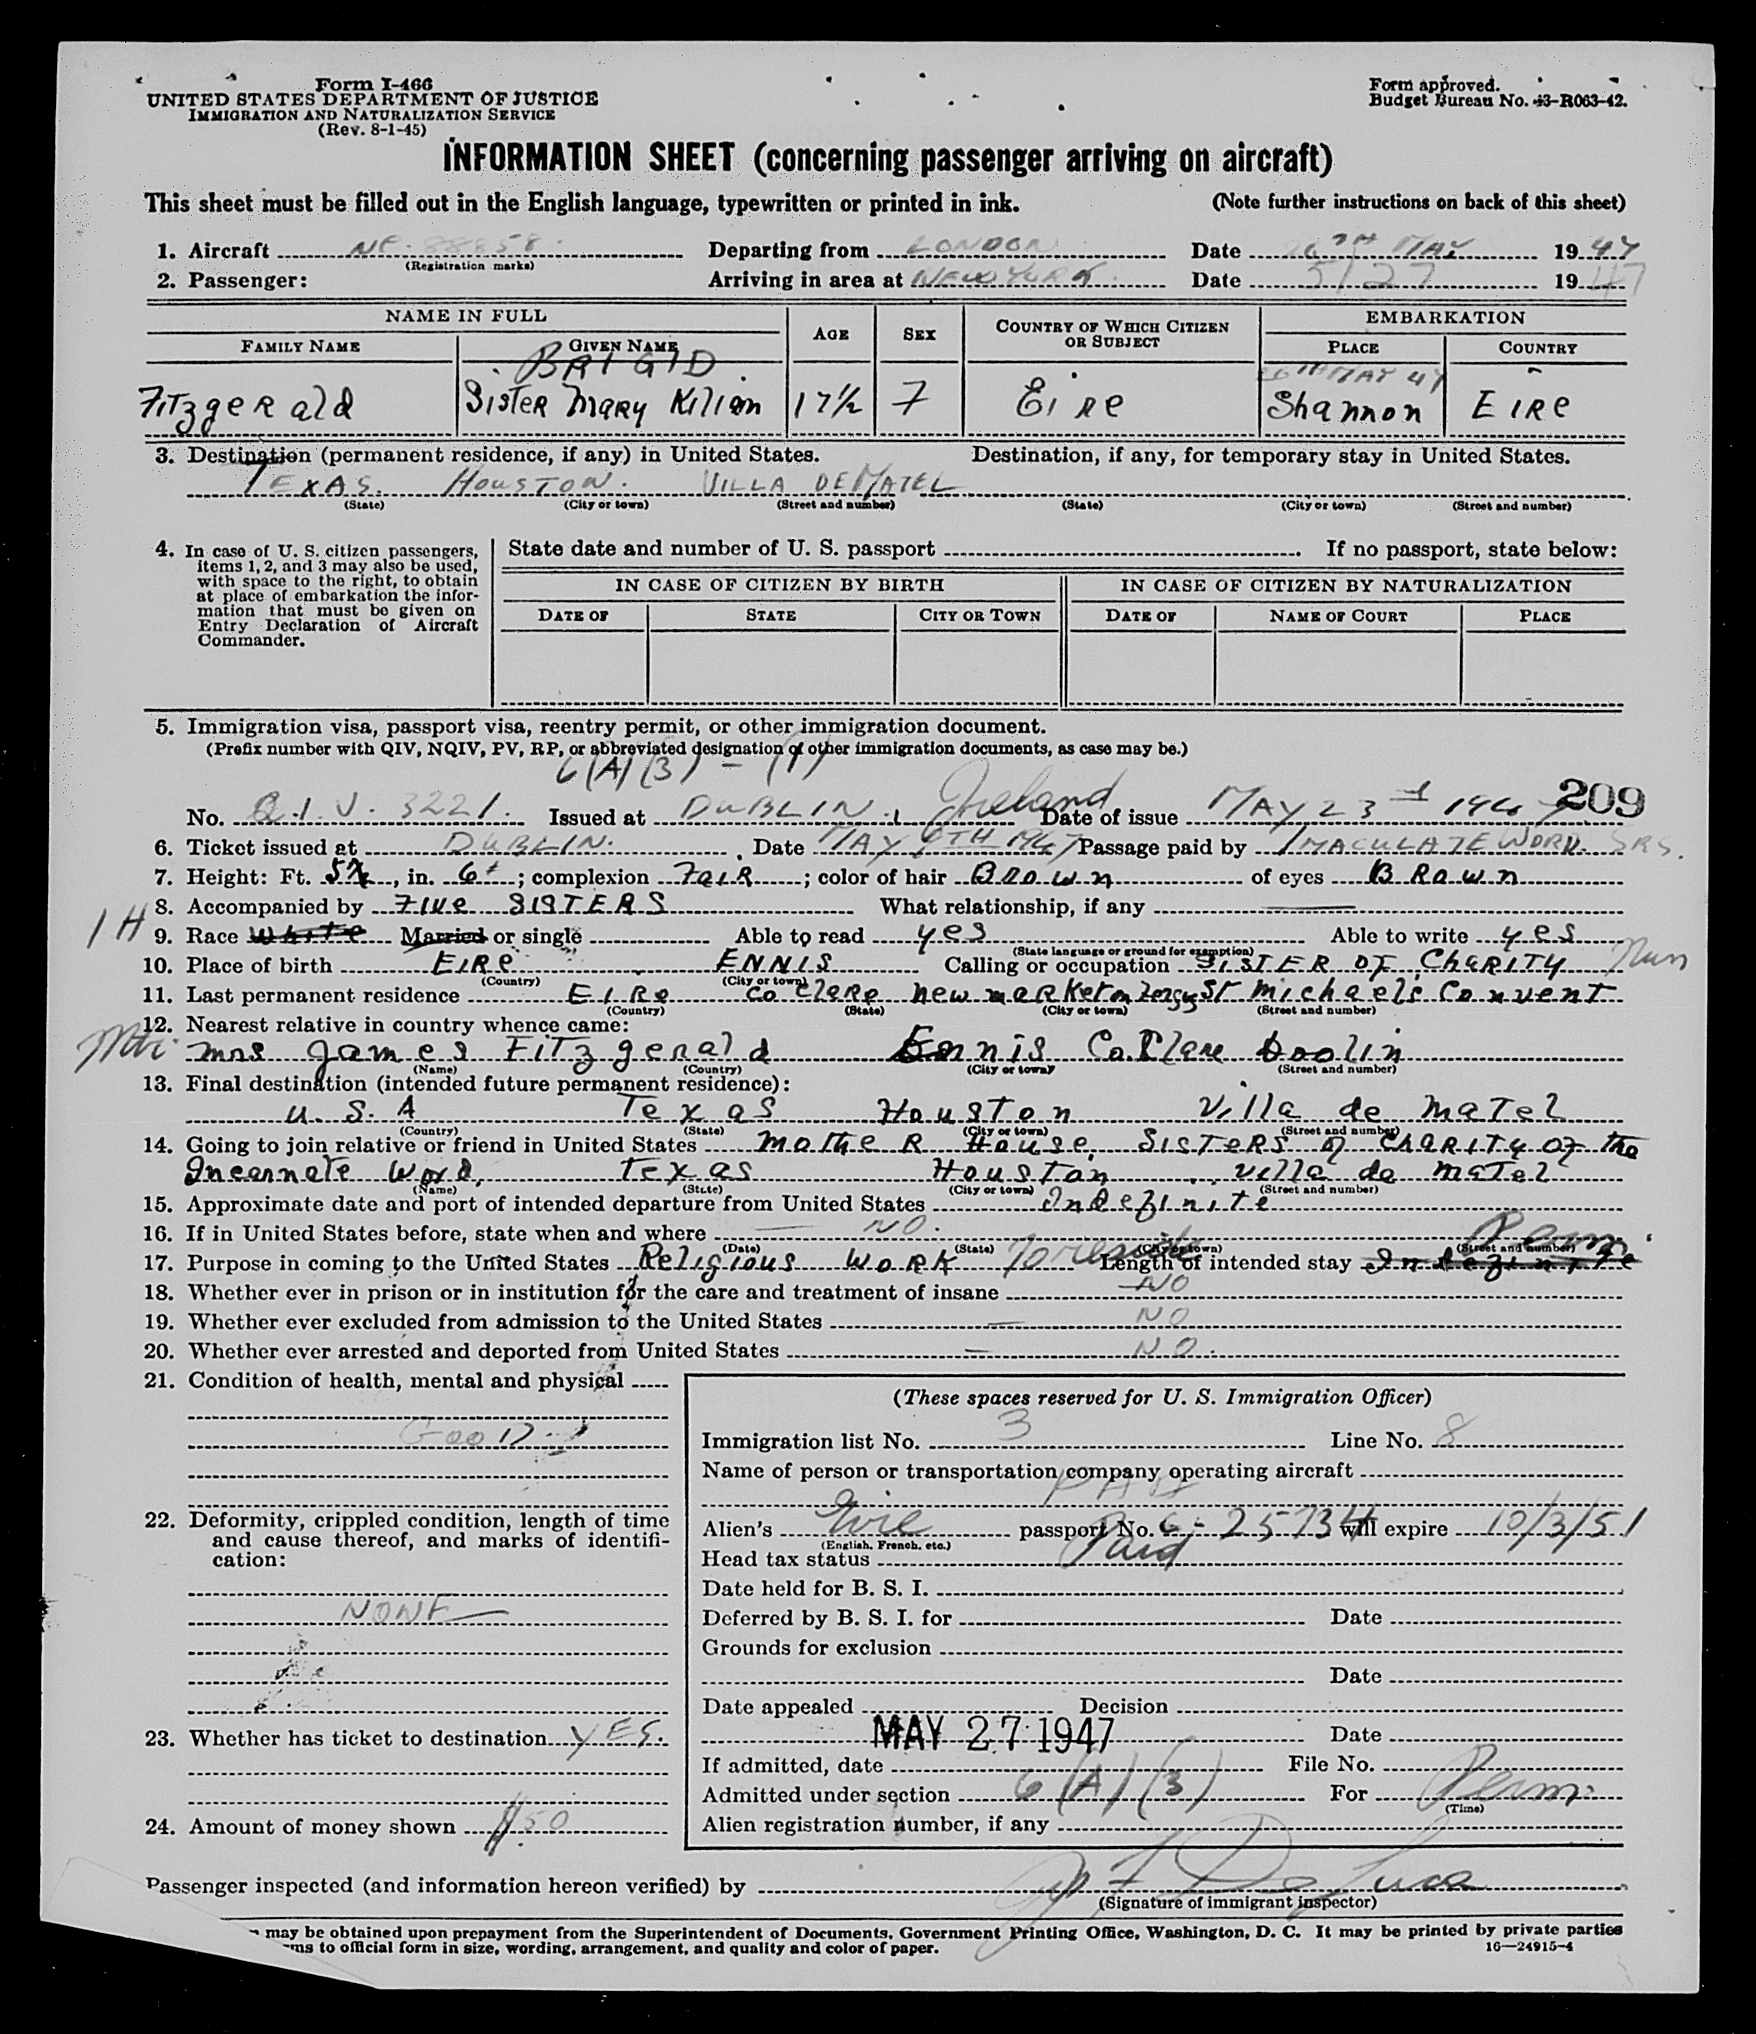 Form I-466
UNITED STATES DEPARTMENT OF JUSTICE
IMMIGRATION AND NATURALIZATION SERVICE
(Rev. 8-1-45)
Form approved.
Budget Bureau No. 43-R063-42.
INFORMATION SHEET (concerning passenger arriving on aircraft)
This sheet must be filled out in the English language, typewritten or printed in ink. (Note further instructions on back of this sheet)
1. Aircraft NC 88858. Departing from LONDON Date 26TH MAY 1947
(Registration marks)
2. Passenger: Arriving in area at NEW YORK. Date 5/27 1947
NAME IN FULL AGE SEX COUNTRY OF WHICH CITIZEN OR SUBJECT EMBARKATION
FAMILY NAME GIVEN NAME PLACE COUNTRY
BRIGID 26TH MAY 47
Fitzgerald Sister Mary Kilian 17½ F Eire Shannon EIRe
3. Destination (permanent residence, if any) in United States. Destination, if any, for temporary stay in United States.
TEXAS. HOUSTON. VILLA DE MATEL
(State) (City or town) (Street and number) (State) (City or town) (Street and number)
4. In case of U. S. citizen passengers, items 1, 2, and 3 may also be used, with space to the right, to obtain at place of embarkation the information that must be given on Entry Declaration of Aircraft Commander.
State date and number of U. S. passport . If no passport, state below:
IN CASE OF CITIZEN BY BIRTH IN CASE OF CITIZEN BY NATURALIZATION
DATE OF STATE CITY OR TOWN DATE OF NAME OF COURT PLACE
5. Immigration visa, passport visa, reentry permit, or other immigration document.
(Prefix number with QIV, NQIV, PV, RP, or abbreviated designation of other immigration documents, as case may be.)
6(A)(3) - (1)
No. Q.I.V. 3221. Issued at DUBLIN, Ireland Date of issue MAY 23rd 1947 209
6. Ticket issued at DUBLIN. Date MAY 9TH 1947 Passage paid by IMACULATE WORD. SRS.
7. Height: Ft. 5, in. 6; complexion Fair; color of hair Brown of eyes Brown
8. Accompanied by Five SISTERS What relationship, if any
1H 9. Race White Married or single Able to read yes Able to write yes
(State language or ground for exemption)
10. Place of birth EIRe ENNIS Calling or occupation SISTER OF CHARITY Nun
(Country) (City or town)
11. Last permanent residence EIRe Co Clare Newmarket on Fergus St Michaels Convent
(Country) (State) (City or town) (Street and number)
12. Nearest relative in country whence came:
Mrs James Fitzgerald Ennis Co. Clare Doolin
(Name) (Country) (City or town) (Street and number)
13. Final destination (intended future permanent residence):
U.S.A Texas Houston Villa de Matel
(Country) (State) (City or town) (Street and number)
14. Going to join relative or friend in United States Mother House, SISTERS OF CHARITY OF the
Incarnate Word, Texas Houston, Villa de Matel
(Name) (State) (City or town) (Street and number)
15. Approximate date and port of intended departure from United States Indefinite
16. If in United States before, state when and where NO.
(Date) (State) (City or town) (Street and number)
17. Purpose in coming to the United States Religious Work To reside Length of intended stay Indefinite Perm.
18. Whether ever in prison or in institution for the care and treatment of insane NO
19. Whether ever excluded from admission to the United States NO
20. Whether ever arrested and deported from United States NO.
21. Condition of health, mental and physical
GOOD.
22. Deformity, crippled condition, length of time and cause thereof, and marks of identification:
NONE
23. Whether has ticket to destination YES.
24. Amount of money shown $50
(These spaces reserved for U. S. Immigration Officer)
Immigration list No. 3 Line No. 8
Name of person or transportation company operating aircraft
PAA
Alien's Eire passport No. C-25734 will expire 10/3/51
(English, French, etc.)
Head tax status Paid
Date held for B. S. I.
Deferred by B. S. I. for Date
Grounds for exclusion
Date
Date appealed Decision
MAY 27 1947 Date
If admitted, date File No.
Admitted under section 6(A)(3) For Perm.
(Time)
Alien registration number, if any
Passenger inspected (and information hereon verified) by De Luca
(Signature of immigrant inspector)
may be obtained upon prepayment from the Superintendent of Documents, Government Printing Office, Washington, D. C. It may be printed by private parties
to official form in size, wording, arrangement, and quality and color of paper. 16—24915-4